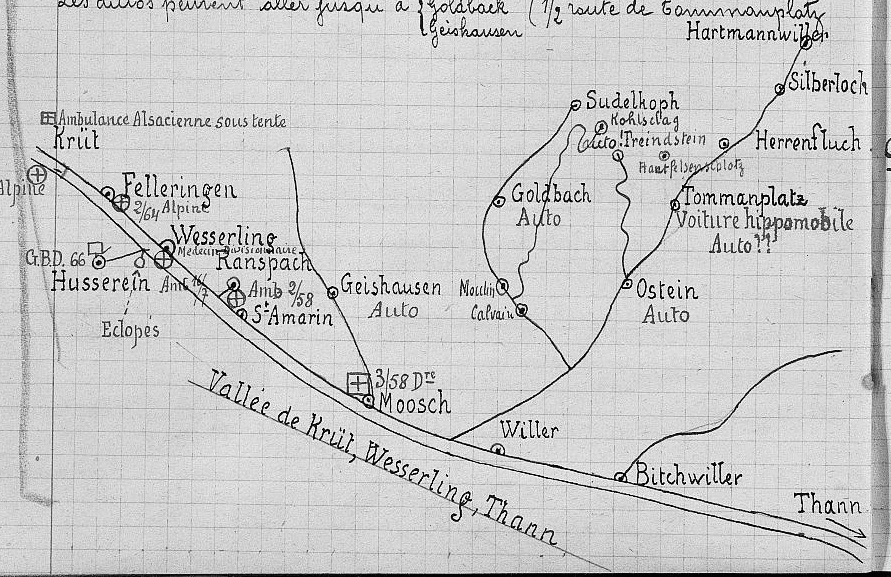 Les autos peuvent aller jusqu'à { Goldback (1/2 route de Tommanplatz
Geishausen
Hartmannwiller
Silberloch
Sudelkoph
Kohlschag
Auto! Treindstein
Herrenfluch
Hautfelsenstplotz
Ambulance Alsacienne sous tente
Krüt
Alpine
Felleringen
2/64 Alpine
Goldbach
Auto
Tommanplatz
Voiture hippomobile
Auto??
Wesserling
Médecin Divisionnaire
G.B.D. 66
Ranspach
Husserein
Amb 16/7
Amb 2/58
Geishausen
Auto
Moulin
Calvain
Ostein
Auto
St Amarin
Eclopés
3/58 Dre
Moosch
Vallée de Krüt, Wesserling, Thann
Willer
Bitchwiller
Thann